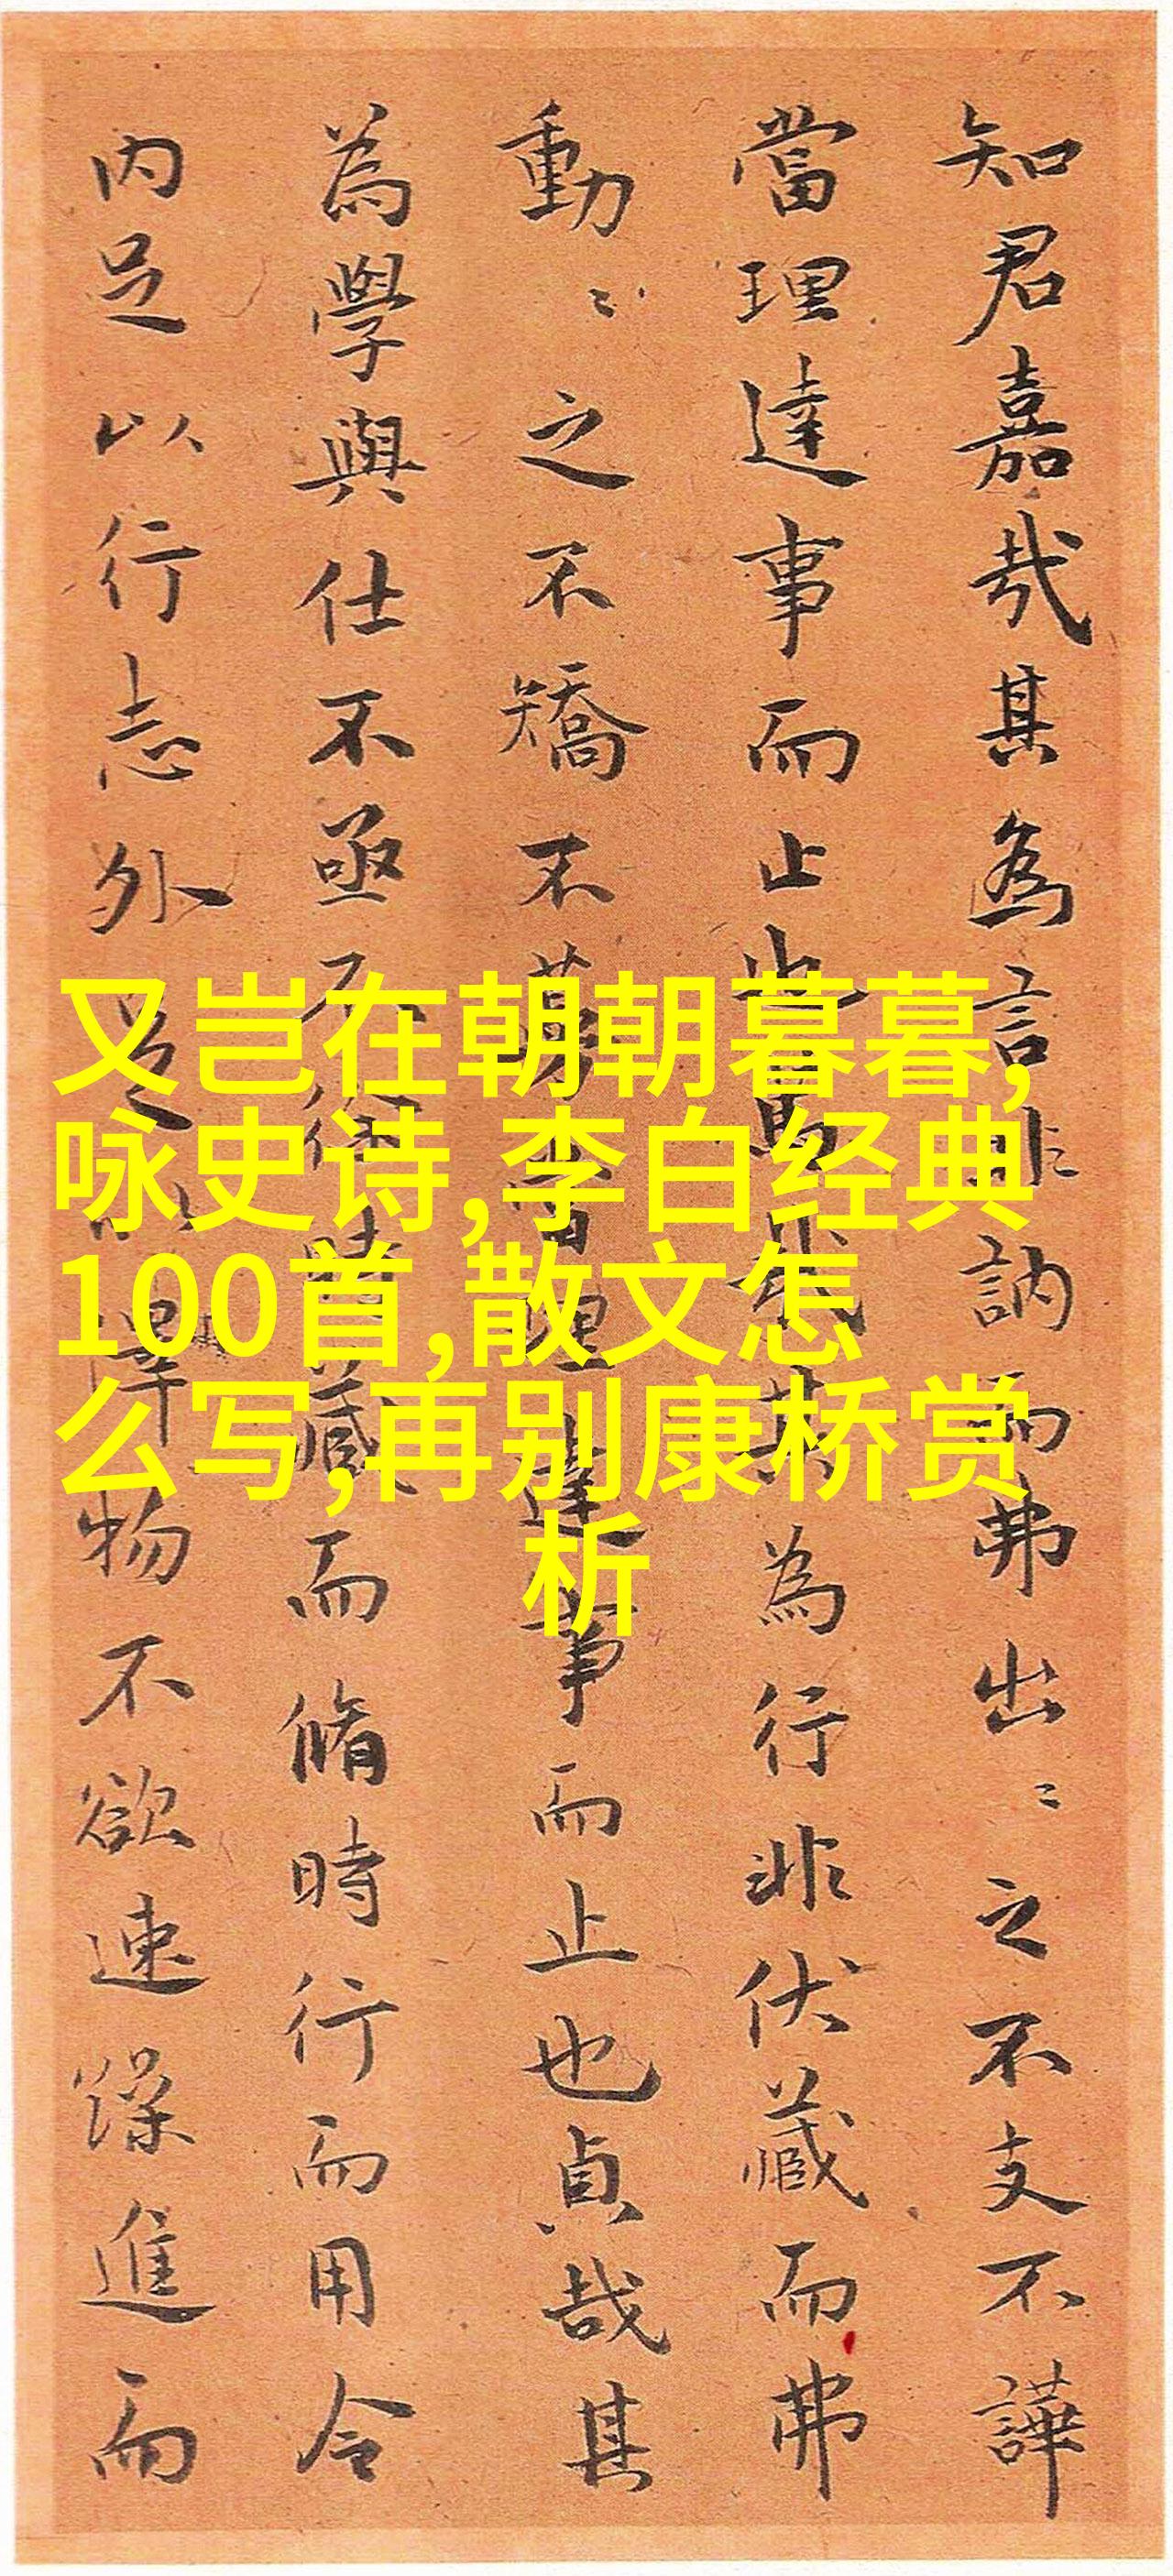 知君嘉哉其為言非訥而弗出〻之不支不譁
當理達事而止也哉其為行非伏藏而弗
動〻之不矯不當理達事而止也貞哉其
為學與仕不亟不時藏而脩時行而用令
内足以行志外足以澤物不欲速躁進而
又岂在朝朝暮暮,
咏史诗,李白经典
100首,散文怎
么写,再别康桥赏
析